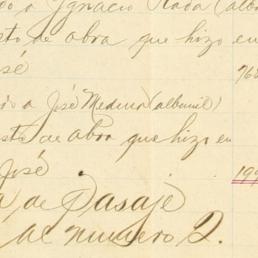 a Ignacio Nava (alb
sto de obra que hizo en
sé 76
a José Medina (albañil)
sto de obra que hizo en
José 199
de Pasaje
al numero 2.